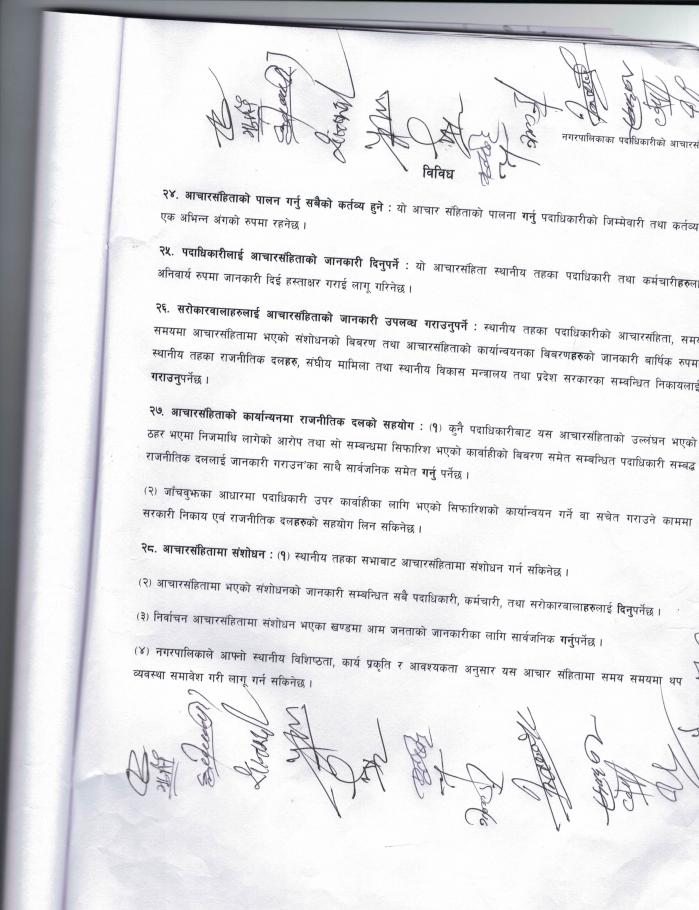 नगरपालिकाका पदाधिकारीको आचारसं
विविध
२४. आचारसंहिताको पालन गर्नु सबैको कर्तव्य हुने : यो आचार संहिताको पालना गर्नु पदाधिकारीको जिम्मेवारी तथा कर्तव्य
एक अभिन्न अंगको रुपमा रहनेछ ।
२५. पदाधिकारीलाई आचारसंहिताको जानकारी दिनुपर्ने : यो आचारसंहिता स्थानीय तहका पदाधिकारी तथा कर्मचारीहरुला
अनिवार्य रुपमा जानकारी दिई हस्ताक्षर गराई लागू गरिनेछ ।
२६. सरोकारवालाहरुलाई आचारसंहिताको जानकारी उपलव्ध गराउनुपर्ने : स्थानीय तहका पदाधिकारीको आचारसंहिता, सम
समयमा आचारसंहितामा भएको संशोधनको बिबरण तथा आचारसंहिताको कार्यान्वयनका बिबरणहरुको जानकारी बार्षिक रुपम
स्थानीय तहका राजनीतिक दलहरु, संघीय मामिला तथा स्थानीय विकास मन्त्रालय तथा प्रदेश सरकारका सम्वन्धित निकायलाई
गराउनुपर्नेछ ।
२७. आचारसंहिताको कार्यान्यनमा राजनीतिक दलको सहयोग : (१) कुनै पदाधिकारीबाट यस आचारसंहिताको उल्लंघन भएको
ठहर भएमा निजमाथि लागेको आरोप तथा सो सम्वन्धमा सिफारिश भएको कार्वाहीको बिबरण समेत सम्वन्धित पदाधिकारी सम्वद्ध
राजनीतिक दललाई जानकारी गराउनका साथै सार्वजनिक समेत गर्नु पर्नेछ ।
(२) जाँचवुझका आधारमा पदाधिकारी उपर कार्वाहीका लागि भएको सिफारिशको कार्यान्वयन गर्ने वा सचेत गराउने काममा
सरकारी निकाय एवं राजनीतिक दलहरुको सहयोग लिन सकिनेछ ।
२८. आचारसंहितामा संशोधन : (१) स्थानीय तहका सभाबाट आचारसंहितामा संशोधन गर्न सकिनेछ ।
(२) आचारसंहितामा भएको संशोधनको जानकारी सम्वन्धित सबै पदाधिकारी, कर्मचारी, तथा सरोकारवालाहरुलाई दिनुपर्नेछ ।
(३) निर्वाचन आचारसंहितामा संशोधन भएका खण्डमा आम जनताको जानकारीका लागि सार्वजनिक गर्नुपर्नेछ ।
(४) नगरपालिकाले आफ्नो स्थानीय विशिष्ठता, कार्य प्रकृति र आवश्यकता अनुसार यस आचार संहितामा समय समयमा थप
व्यवस्था समावेश गरी लागू गर्न सकिनेछ ।